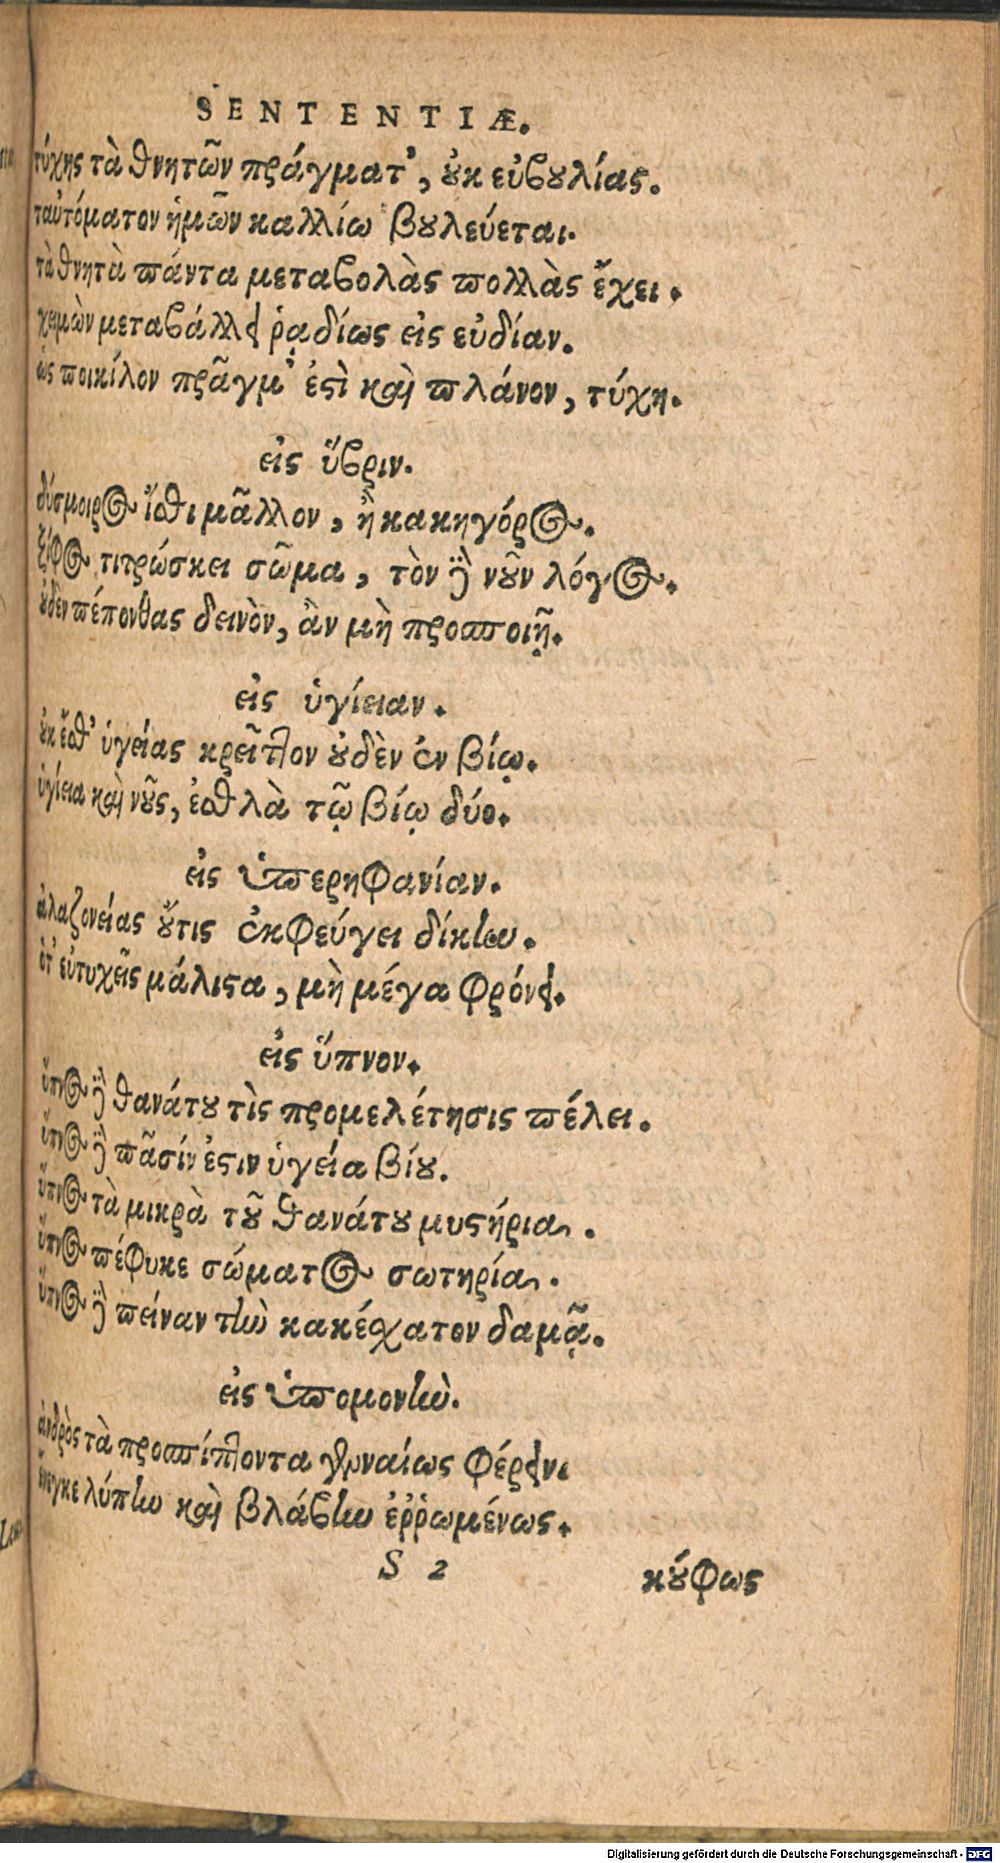 SENTENTIÆ.
τύχης τὰ θνητῶν πράγματ', οὐκ εὐβουλίας.
ταὐτόματον ἡμῶν καλλίω βουλεύεται.
τὰ θνητὰ πάντα μεταβολὰς πολλὰς ἔχει.
χειμὼν μεταβάλλει ῥᾳδίως εἰς εὐδίαν.
ὡς ποικίλον πρᾶγμ' ἐστὶ καὶ πλάνον, τύχη.
εἰς ὕβριν.
δύσμορος ἴσθι μᾶλλον, ἢ κακηγόρος.
ξίφος τιτρώσκει σῶμα, τὸν δὲ νοῦν λόγος.
οὐδὲν πέπονθας δεινὸν, ἂν μὴ προσποιῇ.
εἰς ὑγίειαν.
οὐκ ἔσθ' ὑγείας κρεῖττον οὐδὲν ἐν βίῳ.
ὑγίεια καὶ νοῦς, ἐσθλὰ τῷ βίῳ δύο.
εἰς ὑπερηφανίαν.
ἀλαζονείας οὔτις ἐκφεύγει δίκην.
ὅτ' εὐτυχεῖς μάλιστα, μὴ μέγα φρόνει.
εἰς ὕπνον.
ὕπνος δὲ θανάτου τὶς προμελέτησις πέλει.
ὕπνος δὲ πᾶσίν ἐστιν ὑγεία βίου.
ὕπνος τὰ μικρὰ τοῦ θανάτου μυστήρια.
ὕπνος πέφυκε σώματος σωτηρία.
ὕπνος δὲ πείναν τὴν κακέσχατον δαμᾷ.
εἰς ὑπομονὴν.
ἀνδρὸς τὰ προσπίπτοντα γενναίως φέρειν.
ἔνεγκε λύπην καὶ βλάβην ἐῤῥωμένως.
S 2
κούφως
Digitalisierung gefördert durch die Deutsche Forschungsgemeinschaft - DFG